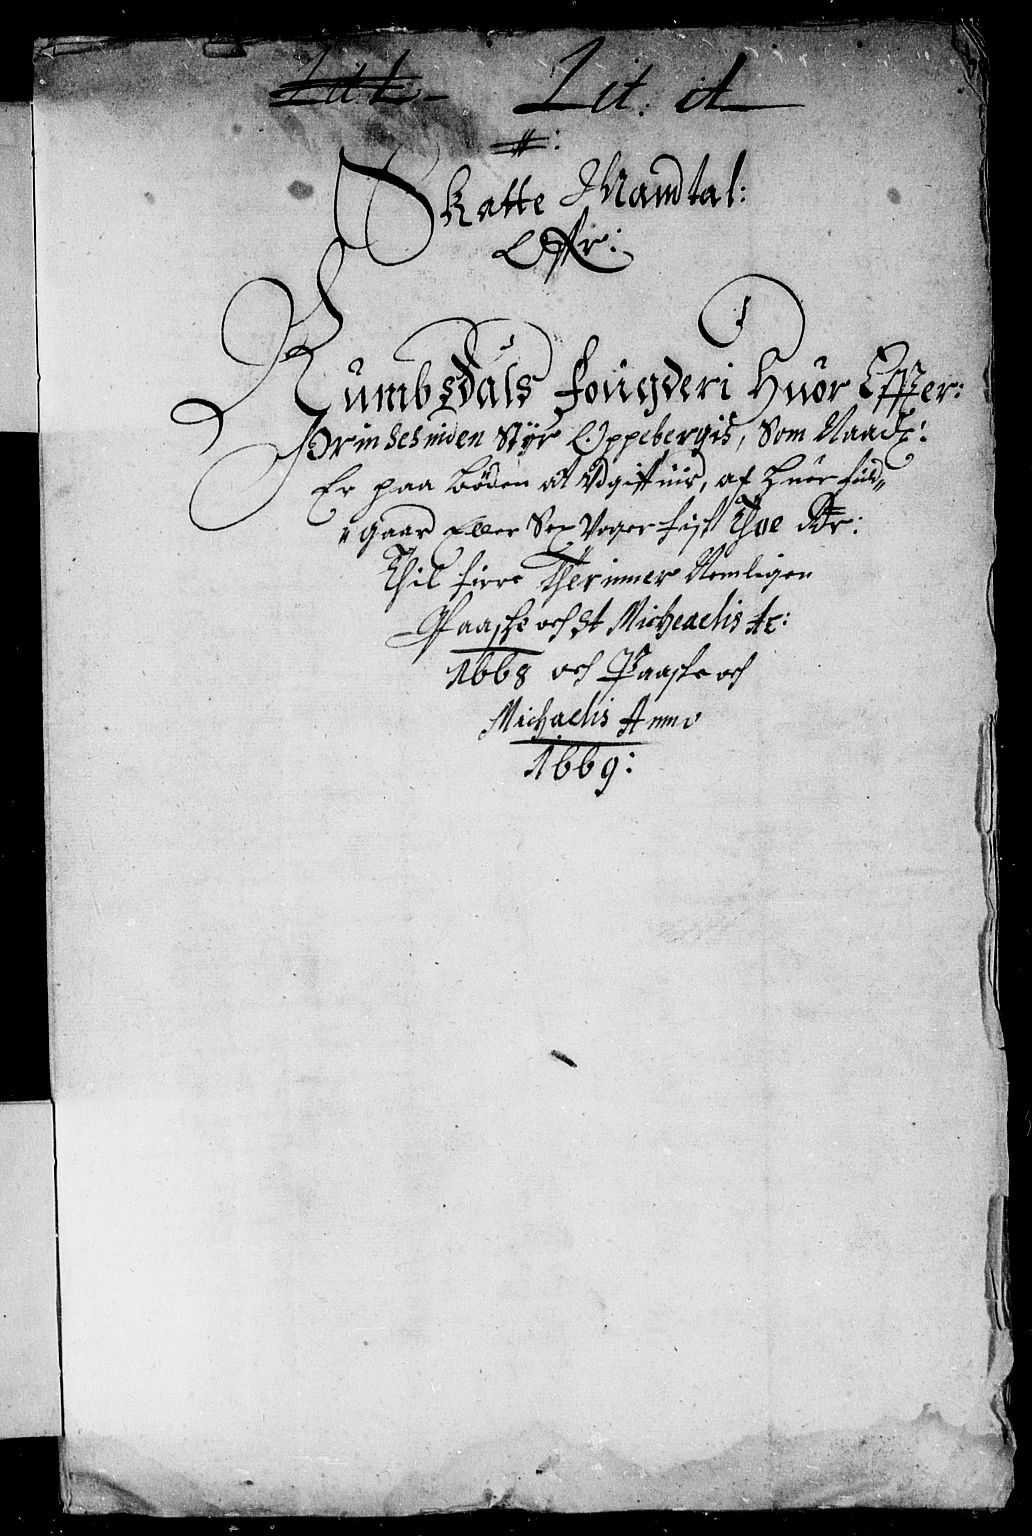 Lit. A
Skatte Mandtal:
Offr:
Rumbsdals fougderi Huor Effter:
Prindsesinden Styr Oppebergis, Som Naad:
Er paa böden at Vdgiffuis, af huer fuld„
„gaard Eller Sex Voger fisk Thoe Rdr:
Thil fiere Therminer Nemligen
Paaske och St Micheaelis Ao:
1668 och Paaske och
Michaelis Anno
1669: